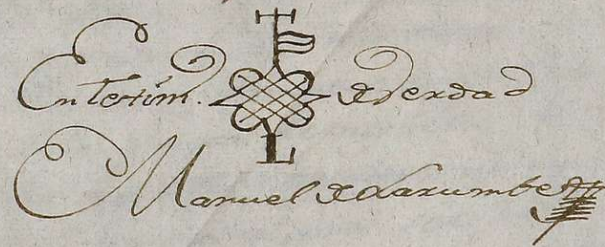 En testim. de verdad
Manuel de Larumbe